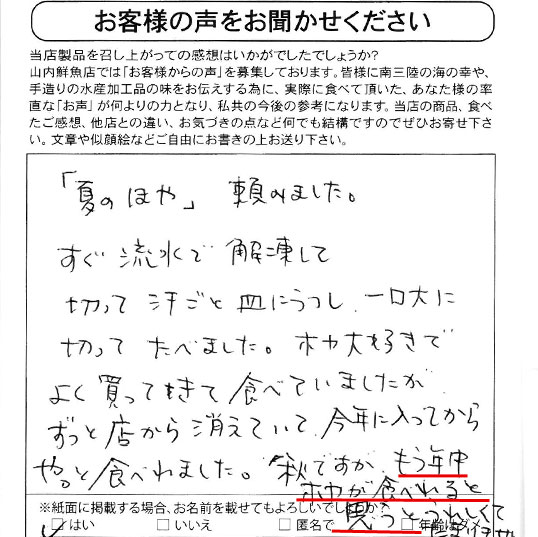 お客様の声をお聞かせください
当店製品を召し上がっての感想はいかがでしたでしょうか?
山内鮮魚店では「お客様からの声」を募集しております。皆様に南三陸の海の幸や、
手造りの水産加工品の味をお伝えする為に、実際に食べて頂いた、あなた様の率
直な「お声」が何よりの力となり、私共の今後の参考になります。当店の商品、食べ
たご感想、他店との違い、お気づきの点など何でも結構ですのでぜひお寄せ下さ
い。文章や似顔絵などご自由にお書きの上お送り下さい。
「夏のほや」頼みました。
すぐ流水で解凍して
切って汁ごと皿にうつし、一口大に
切ってたべました。ホヤ大好きで
よく買ってきて食べていましたが
ずっと店から消えていて、今年に入ってから
やっと食べれました。秋ですが、もう年中
ホヤが食べれると
思うとうれしくて
※紙面に掲載する場合、お名前を載せてもよろしいでしょうか?
はい いいえ 匿名で 年齢はダメ